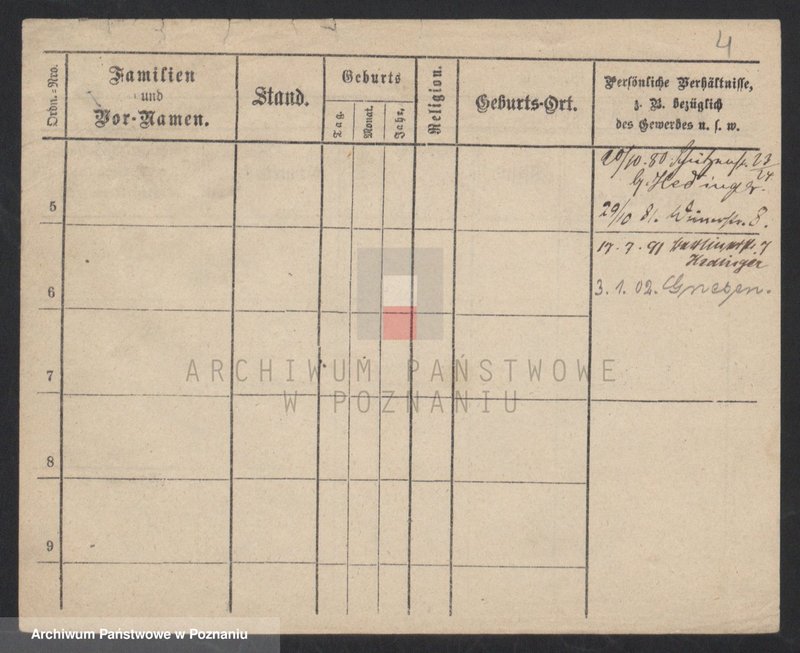 4
Ordn.-Nro.
Familien
und
Vor-Namen.
Stand.
Geburts
Tag.
Monat.
Jahr.
Religion.
Geburts-Ort.
Persönliche Verhältnisse,
z. B. bezüglich
des Gewerbes u. s. w.
20/10. 80 Schützenstr. 23/24
Hedinger
5
29/10 81.
17. 7. 91
Hedinger
6
3. 1. 02. Gnesen.
ARCHIWUM PAŃSTWOWE
W POZNANIU
7
8
9
Archiwum Państwowe w Poznaniu